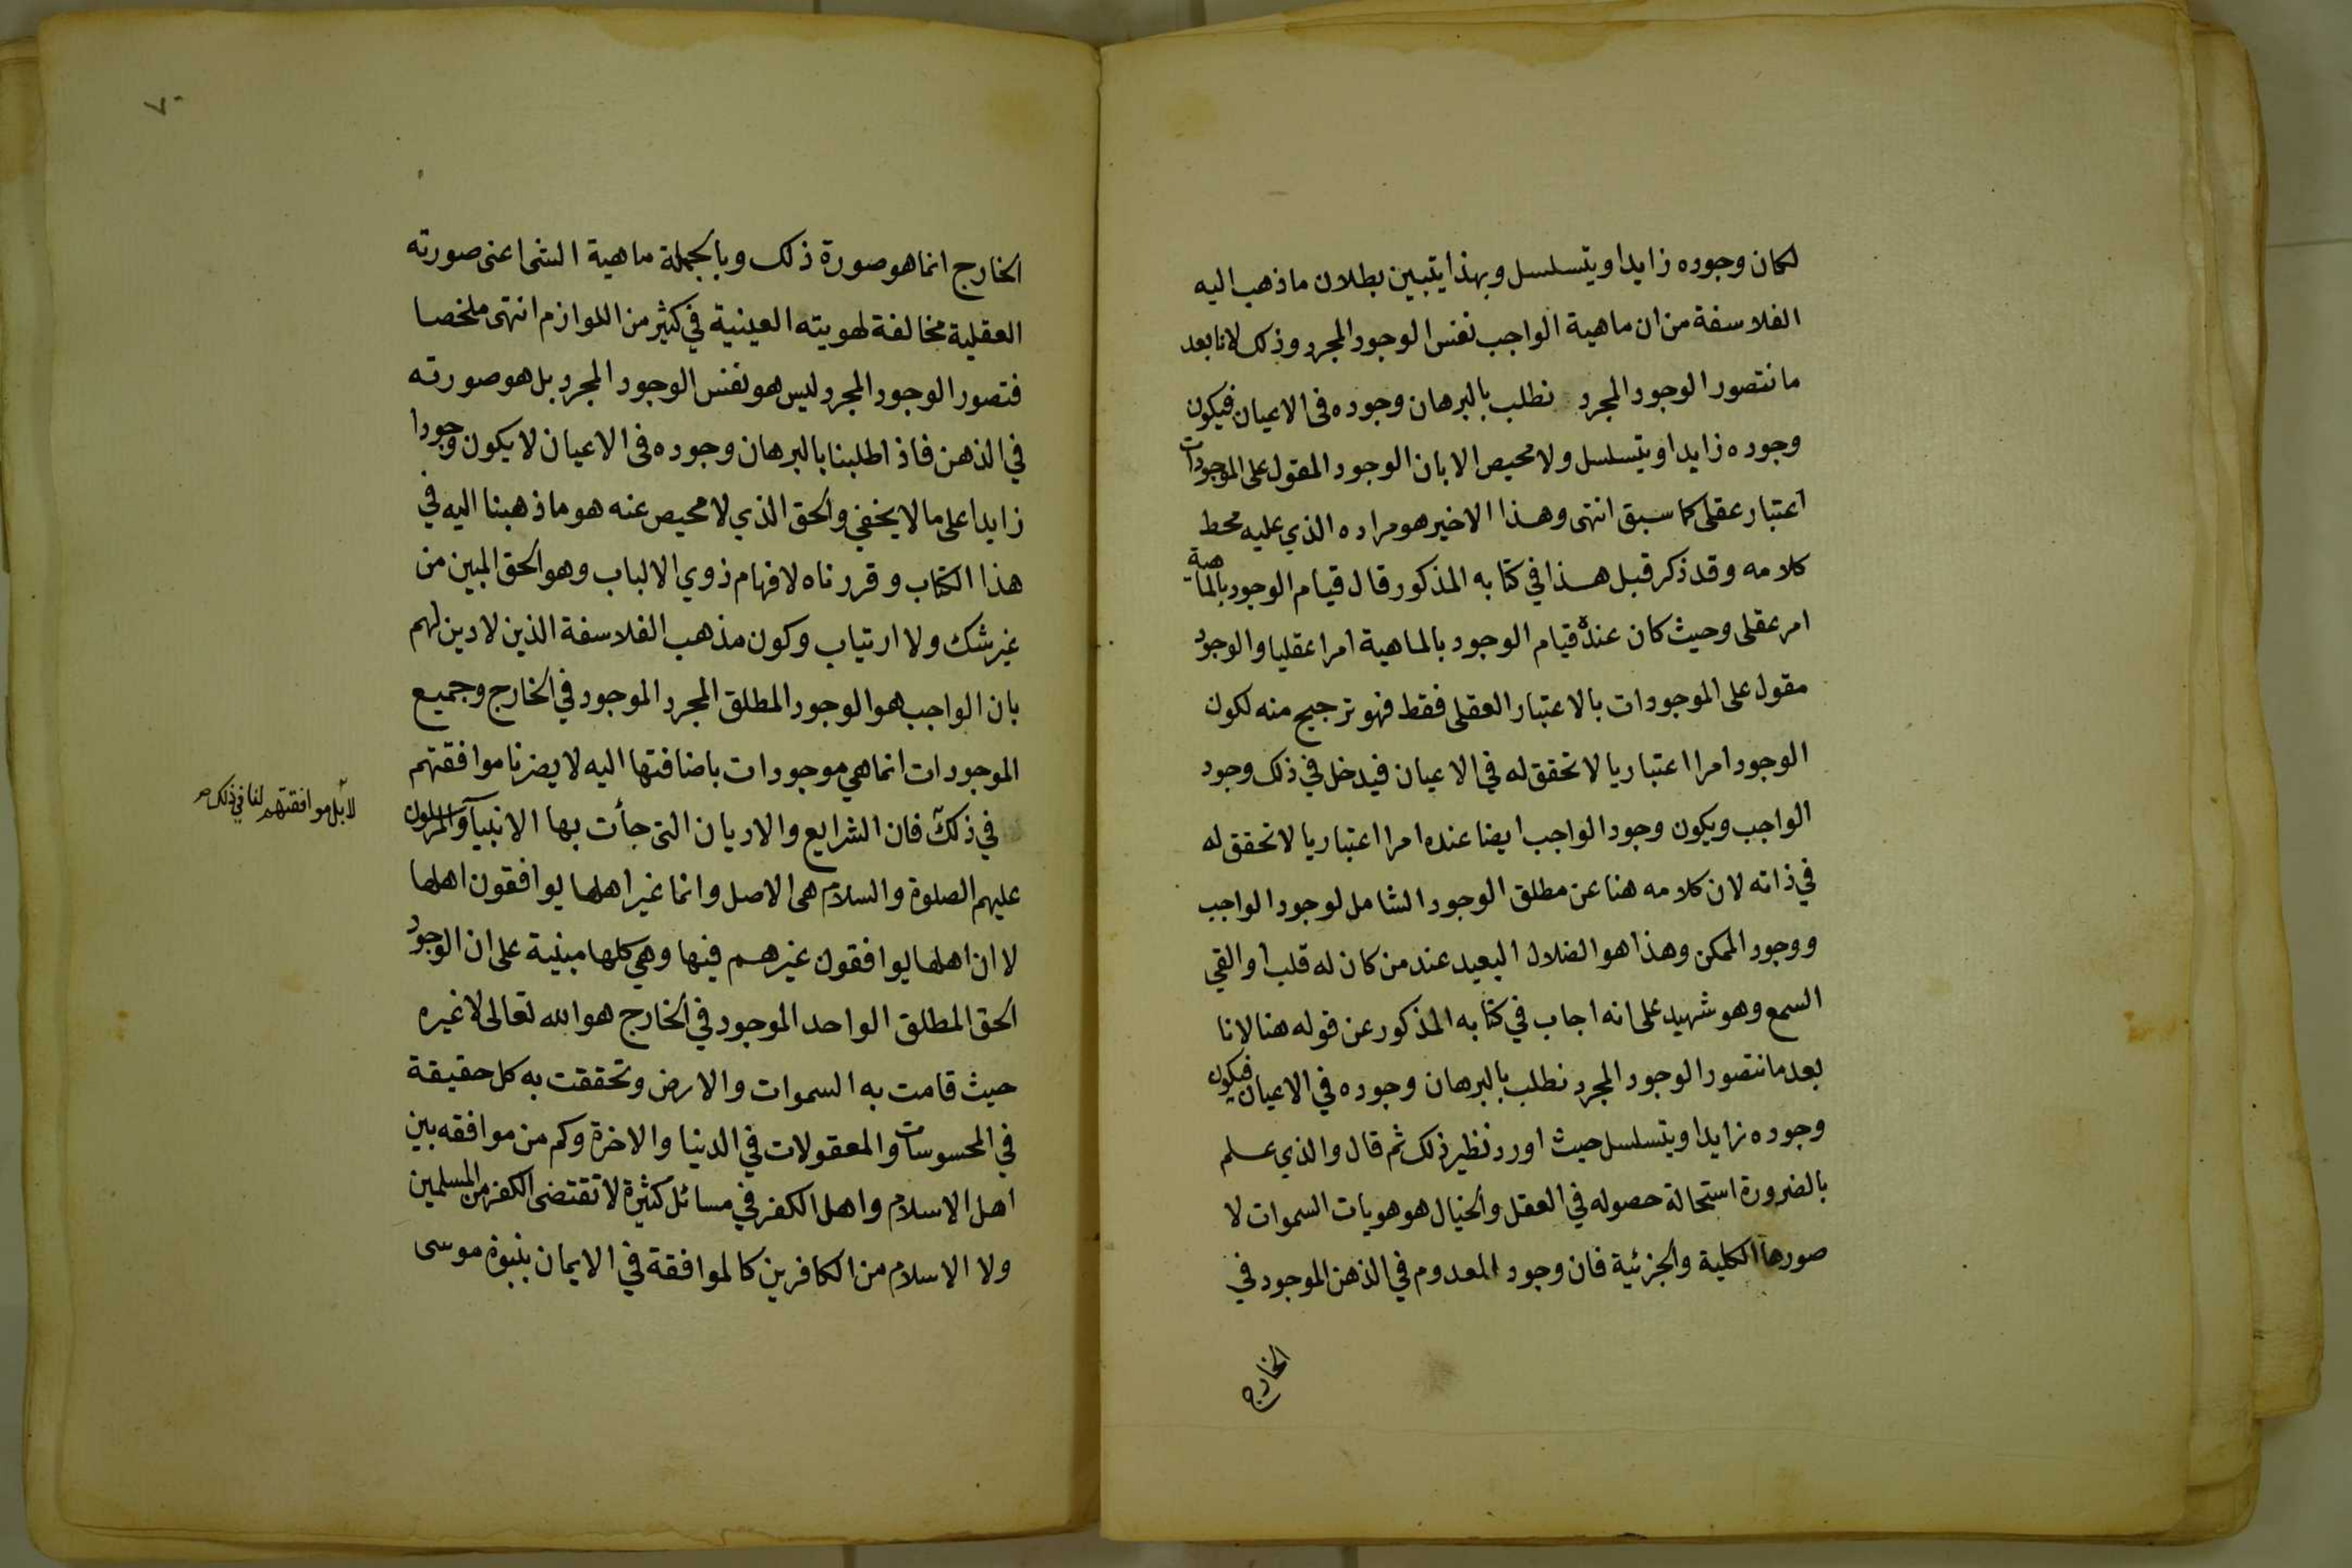 لكان وجوده زايدا ويتسلسل وبهذا يتبين بطلان ما ذهب اليه
الفلاسفة من ان ماهية الواجب نفس الوجود المجرد وذلك لانا بعد
ما نتصور الوجود المجرد نطلب بالبرهان وجوده فى الاعيان فيكون
وجوده زايدا ويتسلسل ولا محيص الا بان الوجود المقول على الموجودات
اعتبار عقلى كما سبق انتهى وهذا الاخير هو مراده الذي عليه محط
كلامه وقد ذكر قبل هذا في كتابه المذكور قال قيام الوجود بالماهية
امر عقلى وحيث كان عنده قيام الوجود بالماهية امرا عقليا والوجود
مقول على الموجودات بالاعتبار العقلى فقط فهو ترجيح منه لكون
الوجود امرا اعتباريا لا تحقق له في الاعيان فيدخل في ذلك وجود
الواجب ويكون وجود الواجب ايضا عنده امرا اعتباريا لا تحقق له
في ذاته لان كلامه هنا عن مطلق الوجود الشامل لوجود الواجب
ووجود الممكن وهذا هو الضلال البعيد عند من كان له قلب او القي
السمع وهو شهيد على انه اجاب في كتابه المذكور عن قوله هنا لانا
بعد ما نتصور الوجود المجرد نطلب بالبرهان وجوده في الاعيان فيكون
وجوده زايدا ويتسلسل حيث اورد نظير ذلك ثم قال والذي علم
بالضرورة استحالة حصوله في العقل والخيال هو هويات السموات لا
صورها الكلية والجزئية فان وجود المعدوم في الذهن الموجود في
الخارج
٧٠
الخارج انما هو صورة ذلك وبالجملة ماهية الشى اعنى صورته
العقلية مخالفة لهويته العينية في كثير من اللوازم انتهى ملخصا
فتصور الوجود المجرد ليس هو نفس الوجود المجرد بل هو صورته
في الذهن فاذا طلبنا بالبرهان وجوده فى الاعيان لا يكون وجودا
زايدا على ما لا يخفي والحق الذي لا محيص عنه هو ما ذهبنا اليه في
هذا الكتاب وقررناه لافهام ذوي الالباب وهو الحق المبين من
غير شك ولا ارتياب وكون مذهب الفلاسفة الذين لا دين لهم
بان الواجب هو الوجود المطلق المجرد الموجود في الخارج وجميع
الموجودات انما هي موجودات باضافتها اليه لا يضرنا موافقتهم
في ذلك فان الشرايع والاديان التى جأت بها الانبيآ والمرسلون
لا بل موافقتهم لنا في ذلك صح
عليهم الصلوة والسلام هى الاصل وانما غير اهلها يوافقون اهلها
لا ان اهلها يوافقون غيرهم فيها وهي كلها مبنية على ان الوجود
الحق المطلق الواحد الموجود في الخارج هو الله تعالى لا غيره
حيث قامت به السموات والارض وتحققت به كل حقيقة
في المحسوسات والمعقولات في الدنيا والاخرة وكم من موافقه بين
اهل الاسلام واهل الكفر في مسائل كثيرة لا تقتضى الكفر من المسلمين
ولا الاسلام من الكافرين كالموافقة في الايمان بنبوة موسى